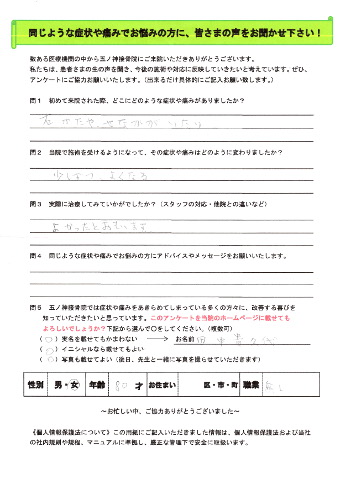 同じような症状や痛みでお悩みの方に、皆さまの声をお聞かせ下さい！
数ある医療機関の中から五ノ神接骨院にご来院いただきありがとうございます。
私たちは、患者さまの生の声を聞き、今後の施術や対応に反映していきたいと考えています。ぜひ、
アンケートにご協力お願いいたします。（出来るだけ具体的にご記入お願い致します。）
問１ 初めて来院された際、どこにどのような症状や痛みがありましたか？
右
問２ 当院で施術を受けるようになって、その症状や痛みはどのように変わりましたか？
少しづつ よくなる
問３ 実際に治療してみていかがでしたか？（スタッフの対応・他院との違いなど）
よかったとおもいます
問４ 同じような症状や痛みでお悩みの方にアドバイスやメッセージをお願いいたします。
問５ 五ノ神接骨院では症状や痛みをあきらめてしまっている多くの方々に、改善する喜びを
知っていただきたいと思っています。このアンケートを当院のホームページに載せても
よろしいでしょうか？下記から選んで○をしてください。（複数可）
（○）実名を載せてもかまわない → お名前 田中
（○）イニシャルなら載せてもよい
（○）写真も載せてよい（後日、先生と一緒に写真を撮らせていただきます）
性別 男・女 年齢 80才 お住まい 区・市・町 職業
～お忙しい中、ご協力ありがとうございました～
《個人情報保護法について》この用紙にご記入いただきました情報は、個人情報保護法および当社
の社内規則や規程、マニュアルに準拠し、厳正な管理下で安全に取扱います。